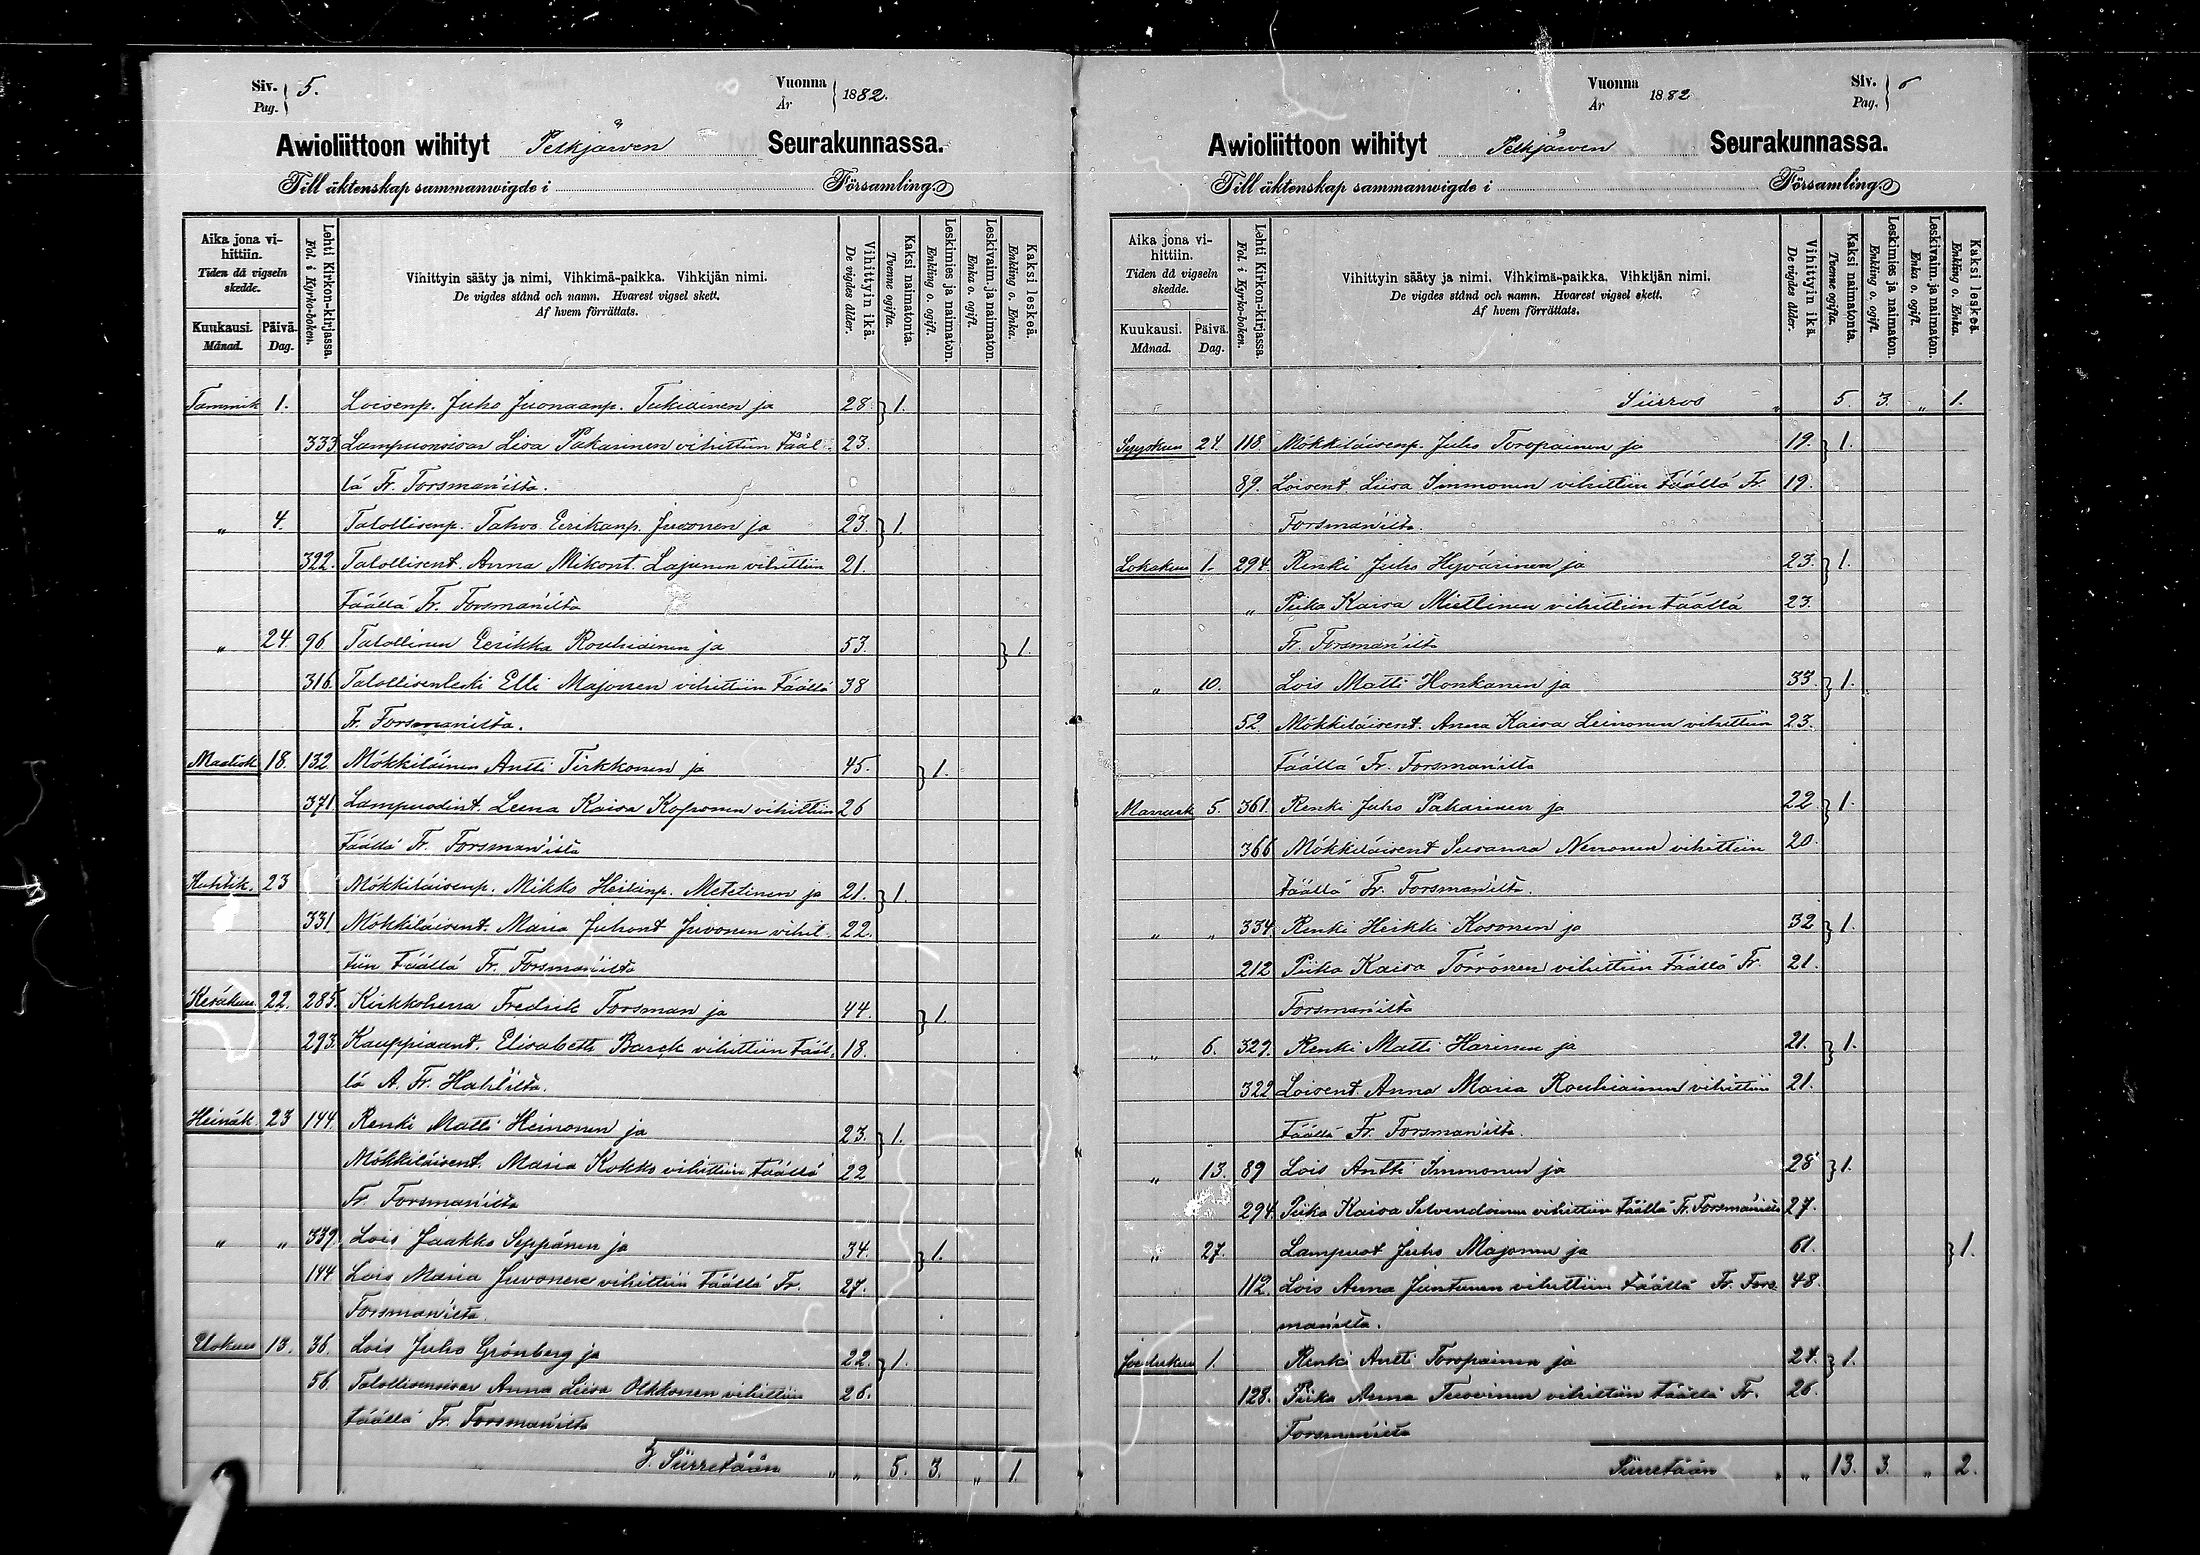 Siv. 5.
Pag.
Vuonna 1882.
År
Awioliittoon wihityt Pelkjärwen Seurakunnassa.
Till äktenskap sammanwigde i Församling.
Aika jona vi-
hittiin.
Tiden då vigseln
skedde.
Kuukausi. Päivä.
Månad. Dag.
Lehti Kirkon-kirjassa.
Fol. i Kyrko-boken.
Vihittyin sääty ja nimi, Vihkimä-paikka. Vihkijän nimi.
De vigdes stånd och namn. Hvarest vigsel skett.
Af hvem förrättats.
Vihittyin ikä.
De vigdes ålder.
Kaksi naimatonta.
Tvenne ogifta.
Leskimies ja naimaton.
Enkling o. ogift.
Leskivaim. ja naimaton.
Enka o. ogift.
Kaksi leskeä.
Enkling o. Enka.
Tammik 1. Loisenp. Juho Juonaanp. Tukiainen ja 28. 1.
333 Lampuonsisar Liisa Pakarinen vihittiin tääl- 23.
lä Fr. Forsman'ilta.
„ 4. Talollisenp. Tahvo Eerikanp. Juvonen ja 23. 1.
322. Talollisent. Anna Mikont. Lajunen vihittiin 21.
täällä Fr. Forsman'ilta
„ 24. 96. Talollinen Eerikka Rouhiainen ja 53. 1.
316. Talollisenleski Elli Majonen vihittiin täällä 38
Fr. Forsmanilta.
Maalisk 18. 132 Mökkiläinen Antti Tirkkonen ja 45. 1.
371. Lampuodint. Leena Kaisa Koponen vihittiin 26
täällä Fr. Forsman'ilta
Huhtik. 23 Mökkiläisenp. Mikko Heikinp. Metelinen ja 21. 1.
331 Mökkiläisent. Maria Juhont Juvonen vihit- 22.
tiin täällä Fr. Forsman'ilta
Kesäkuu 22. 285. Kirkkoherra Fredrik Forsman ja 44. 1.
293. Kauppiaant. Elisabeth Barck vihittiin tääl- 18.
lä A. Fr. Hahl'ilta.
Heinäk. 23 144. Renki Matti Heinonen ja 23. 1.
Mökkiläisent. Maria Kokko vihittiin täällä 22
Fr. Forsman'ilta
„ „ 339. Lois Jaakko Seppänen ja 34. 1.
144 Lois Maria Juvonen vihittiin täällä Fr. 27.
Forsman'ilta.
Elokuu 13. 36. Lois Juho Grönberg ja 22. 1.
56. Talollisensisar Anna Liisa Olkkonen vihittiin 26.
täällä Fr. Forsman'ilta
Siirretään „ „ 5. 3. „ 1.
Vuonna 1882
År
Siv. 6
Pag.
Awioliittoon wihityt Pelkjärwen Seurakunnassa.
Till äktenskap sammanwigde i Församling.
Aika jona vi-
hittiin.
Tiden då vigseln
skedde.
Kuukausi. Päivä.
Månad. Dag.
Lehti Kirkon-kirjassa.
Fol. i Kyrko-boken.
Vihittyin sääty ja nimi, Vihkimä-paikka. Vihkijän nimi.
De vigdes stånd och namn. Hvarest vigsel skett.
Af hvem förrättats.
Vihittyin ikä.
De vigdes ålder.
Kaksi naimatonta.
Tvenne ogifta.
Leskimies ja naimaton.
Enkling o. ogift.
Leskivaim. ja naimaton.
Enka o. ogift.
Kaksi leskeä.
Enkling o. Enka.
Siirros „ 5. 3. „ 1.
Syyskuu 24. 118. Mökkiläisenp. Juho Toropainen ja 19. 1.
89. Loisent. Liisa Immonen vihittiin täällä Fr. 19.
Forsman'ilta.
Lokakuu 1. 294. Renki Juho Hyvärinen ja 23. 1.
„ Piika Kaisa Miettinen vihittiin täällä 23.
Fr. Forsman'ilta
„ 10. Lois Matti Honkanen ja 33. 1.
52. Mökkiläisent. Anna Kaisa Leinonen vihittiin 23.
täällä Fr. Forsman'ilta
Marrask 5. 361. Renki Juho Pakarinen ja 22. 1.
366 Mökkiläisent Susanna Nenonen vihittiin 20.
täällä Fr. Forsman'ilta.
„ „ 334. Renki Heikki Kosonen ja 32 1.
212 Piika Kaisa Törrönen vihittiin täällä Fr. 21.
Forsman'ilta
„ 6. 329. Renki Matti Harinen ja 21. 1.
322 Loisent. Anna Maria Rouhiainen vihittiin 21.
täällä Fr. Forsman'ilta.
„ 13. 89 Lois Antti Immonen ja 28 1.
294. Piika Kaisa Silvendoinen vihittiin täällä Fr. Forsman'ilta 27.
„ 27. Lampuot Juho Majonen ja 61. 1.
112. Lois Anna Juntunen vihittiin täällä Fr. Fors- 48.
man'ilta.
Joulukuu 1. Renki Antti Toropainen ja 24. 1.
128. Piika Anna Tuovinen vihittiin täällä Fr. 26.
Forsman'ilta
Siirretään „ „ 13. 3. „ 2.